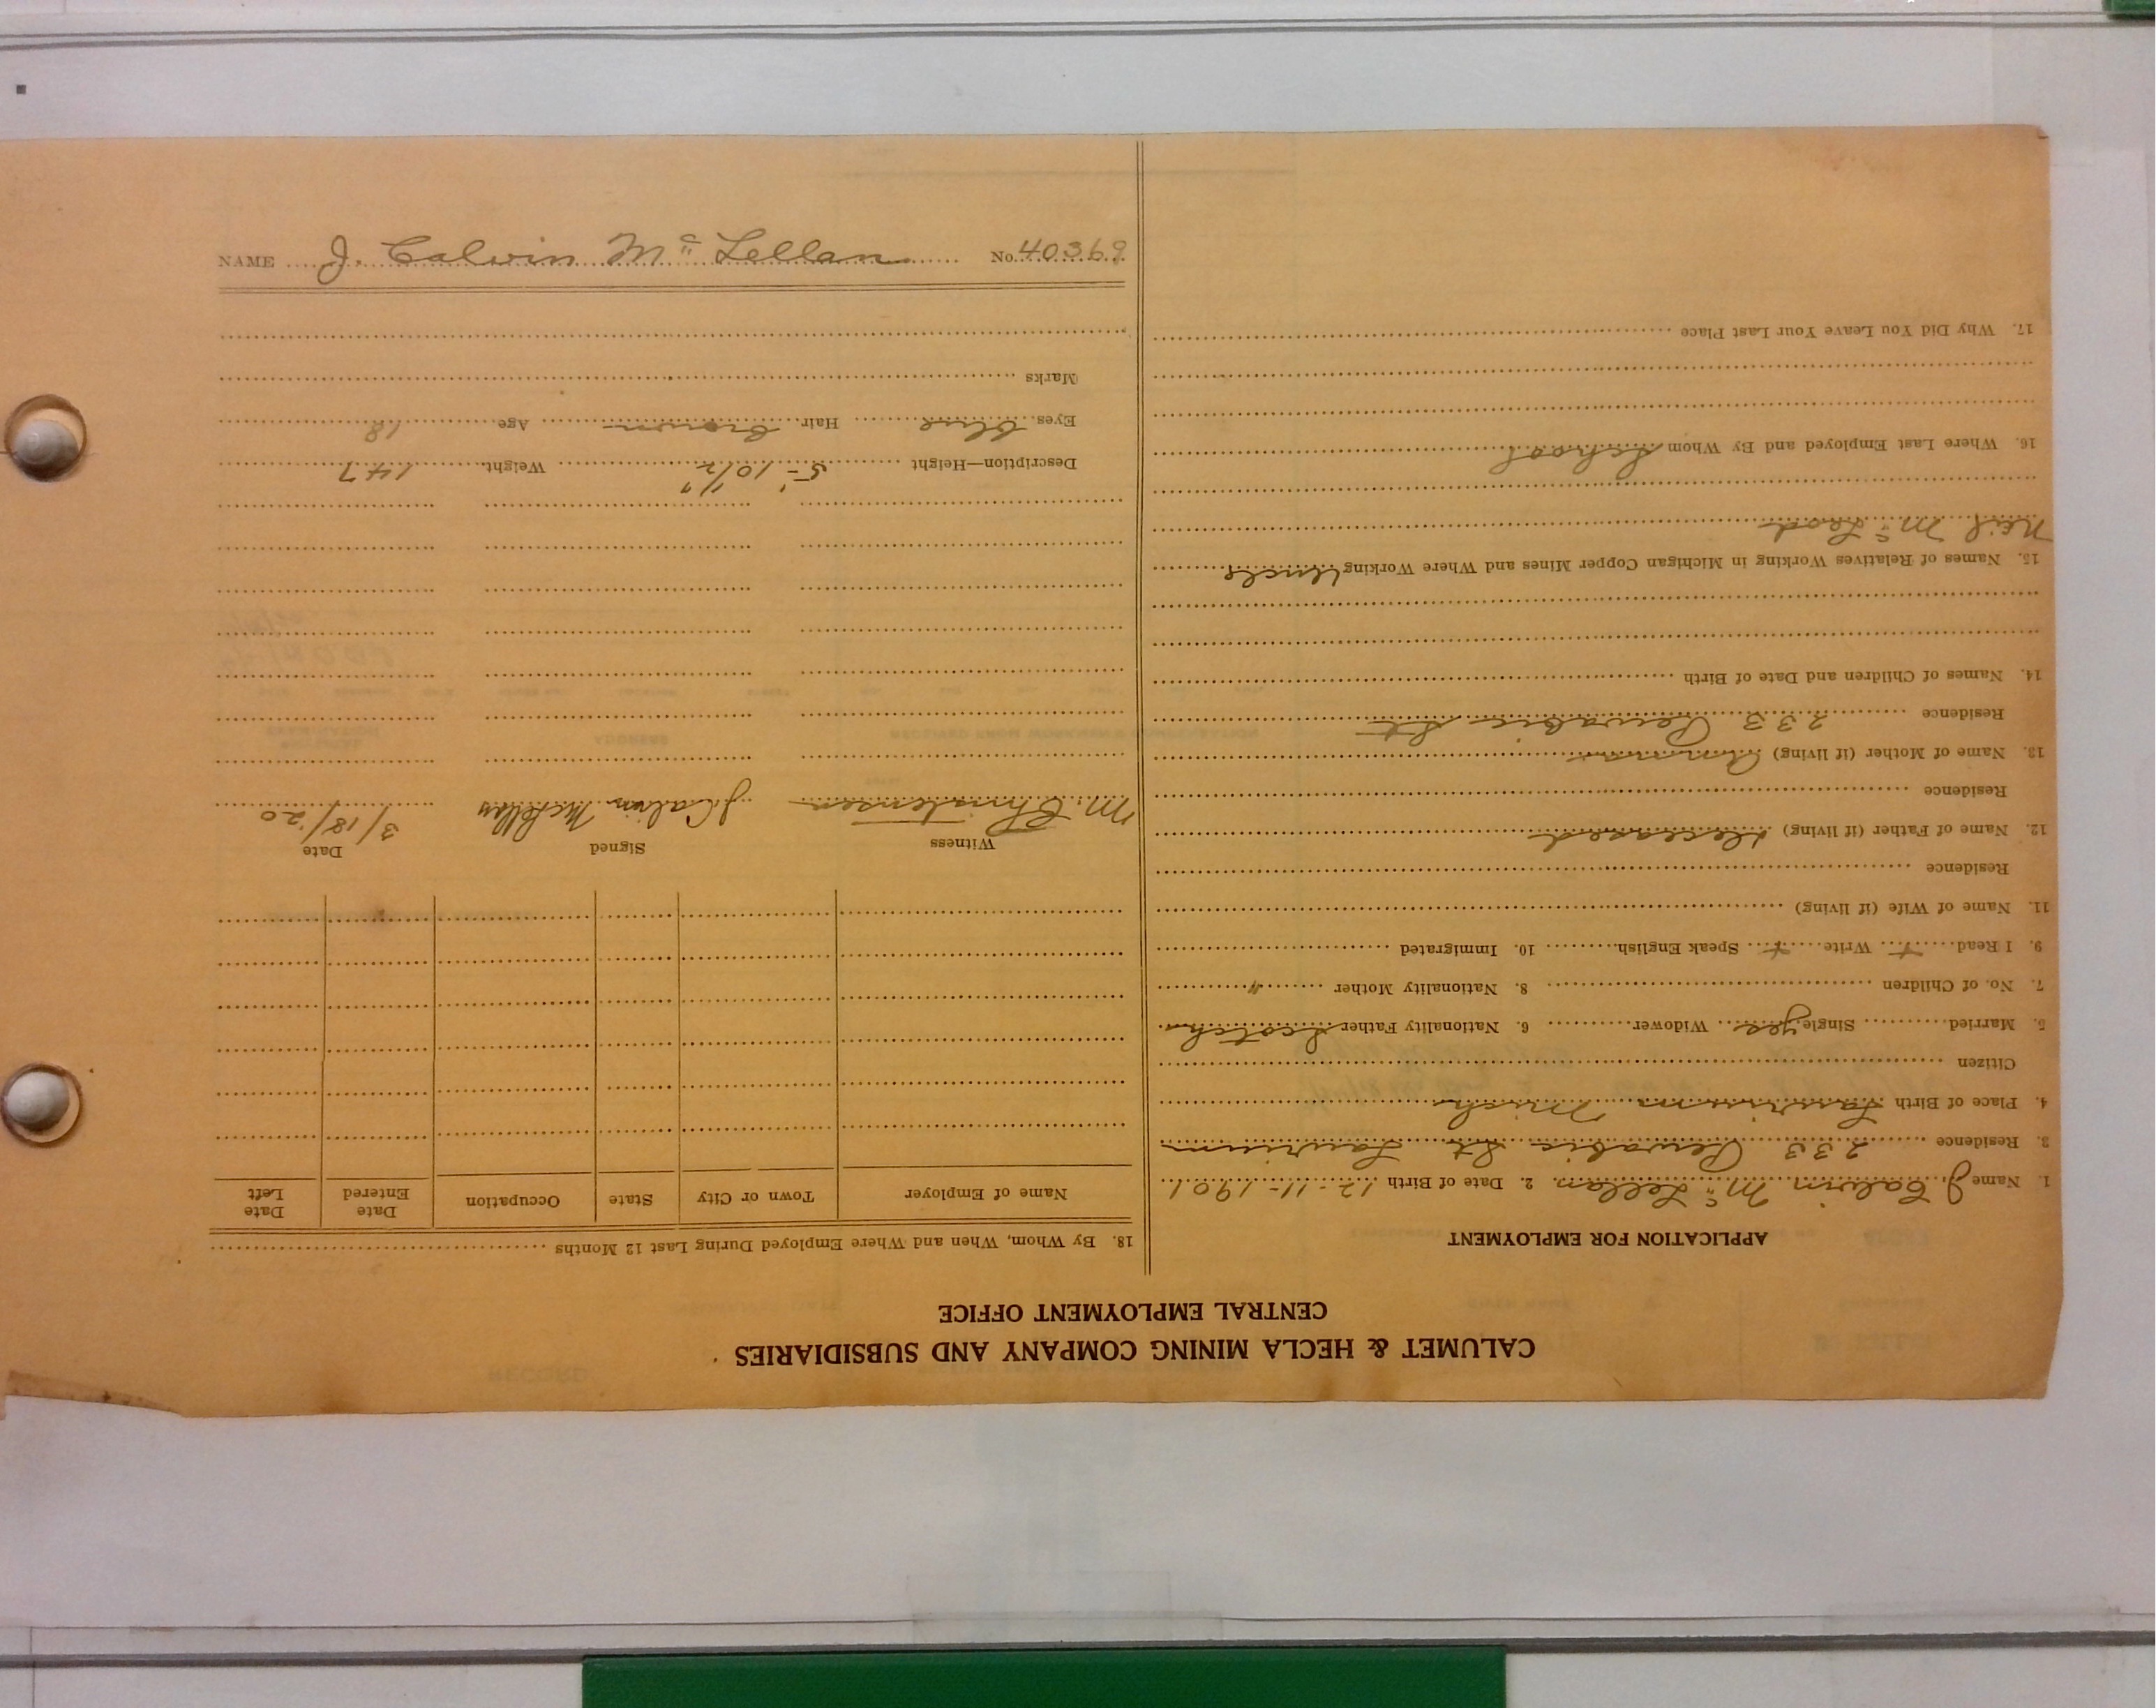 CALUMET & HECLA MINING COMPANY AND SUBSIDIARIES
CENTRAL EMPLOYMENT OFFICE
APPLICATION FOR EMPLOYMENT
1. Name J Calvin Mc Lellan 2. Date of Birth 12-11-1901
3. Residence 233 Pewabic St Laurium
4. Place of Birth Laurium Mich
Citizen
5. Married Single yes Widower 6. Nationality Father Scotch
7. No. of Children 8. Nationality Mother "
9. I Read + Write + Speak English 10. Immigrated
11. Name of Wife (if living)
Residence
12. Name of Father (if living) deceased
Residence
13. Name of Mother (if living) Anna
Residence 233 Pewabic St
14. Names of Children and Date of Birth
15. Names of Relatives Working in Michigan Copper Mines and Where Working Uncle
Neil Mc Leod
16. Where Last Employed and By Whom School
17. Why Did You Leave Your Last Place
18. By Whom, When and Where Employed During Last 12 Months
Name of Employer Town or City State Occupation Date Entered Date Left
Witness Signed Date
M. Christensen J Calvin McLellan 3/18/20
Description—Height 5'-10 1/2" Weight 147
Eyes blue Hair brown Age 18
Marks
NAME J. Calvin Mc Lellan No. 40369